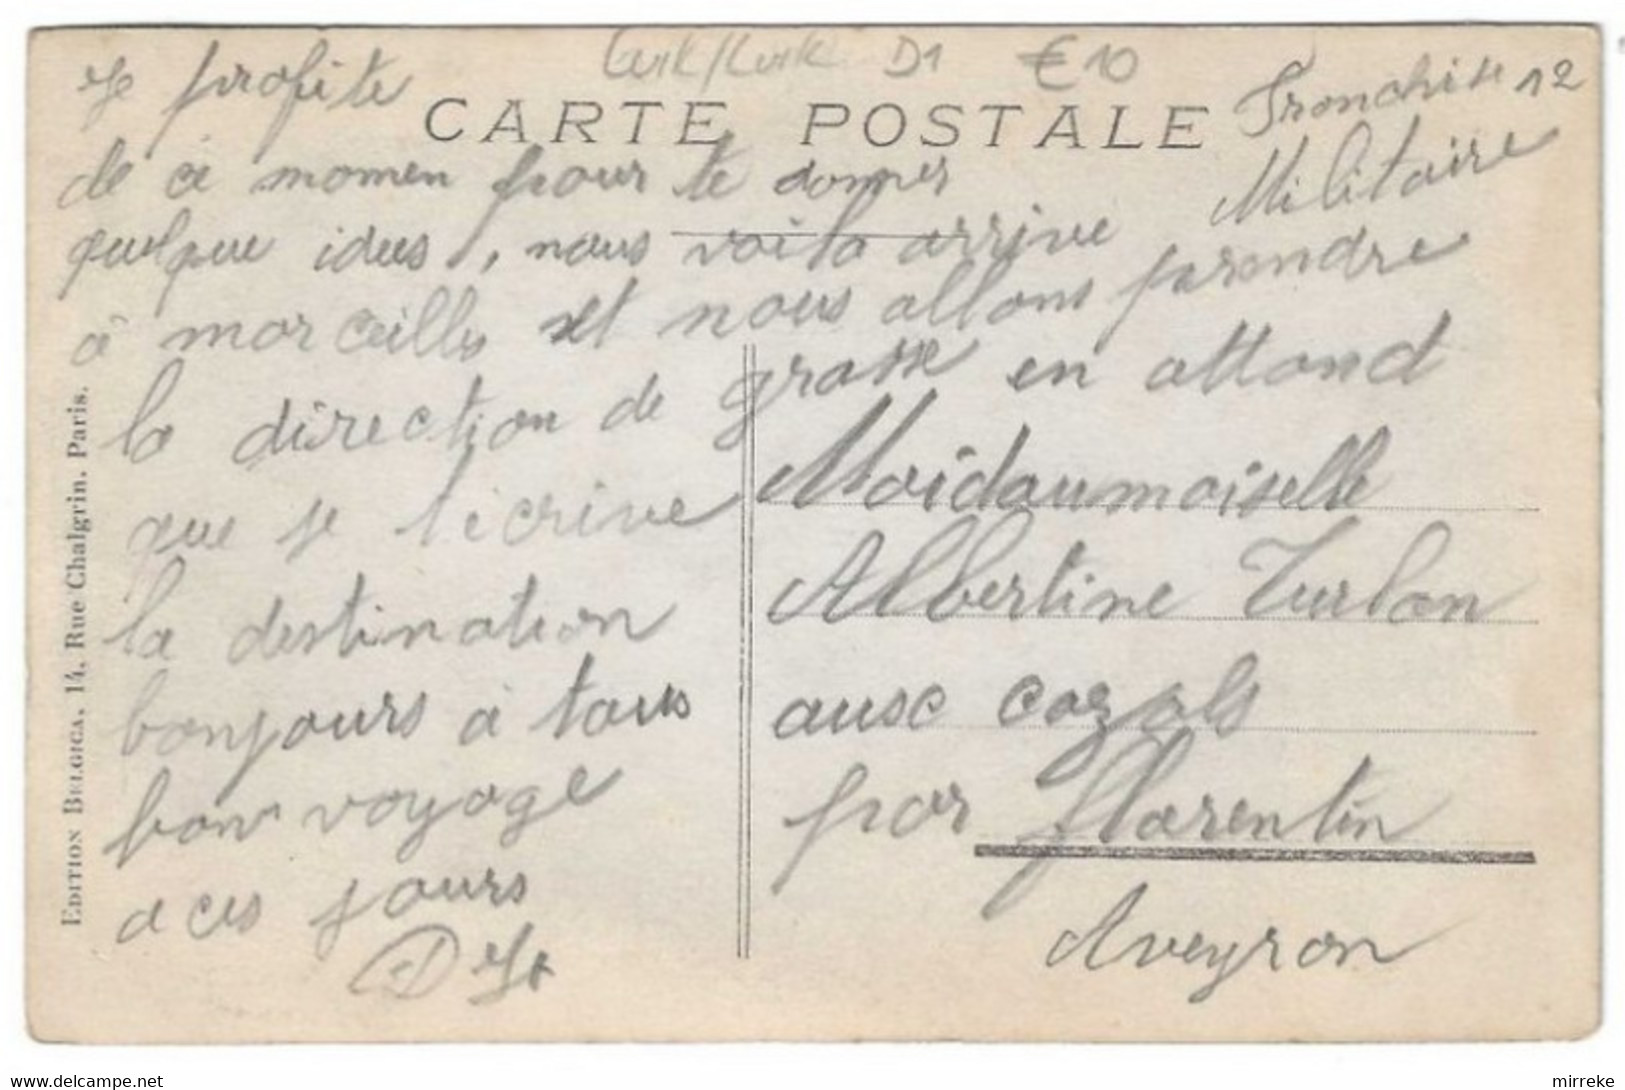 D1 € 10
Franchise 12
Militaire
CARTE POSTALE
Je profite
de ce momen pour te donner
quelque idees, nous voila arrive
à marceille et nous allons prendre
la direction de grasse en attand
que je t'ecrive
la destination
bonjours à tous
bon voyage
a ces jours
Maidaumoiselle
Albertine Turlan
ause cazals
par florentin
Aveyron
EDITION BELGICA. 14. Rue Chalgrin. Paris.
mirreke